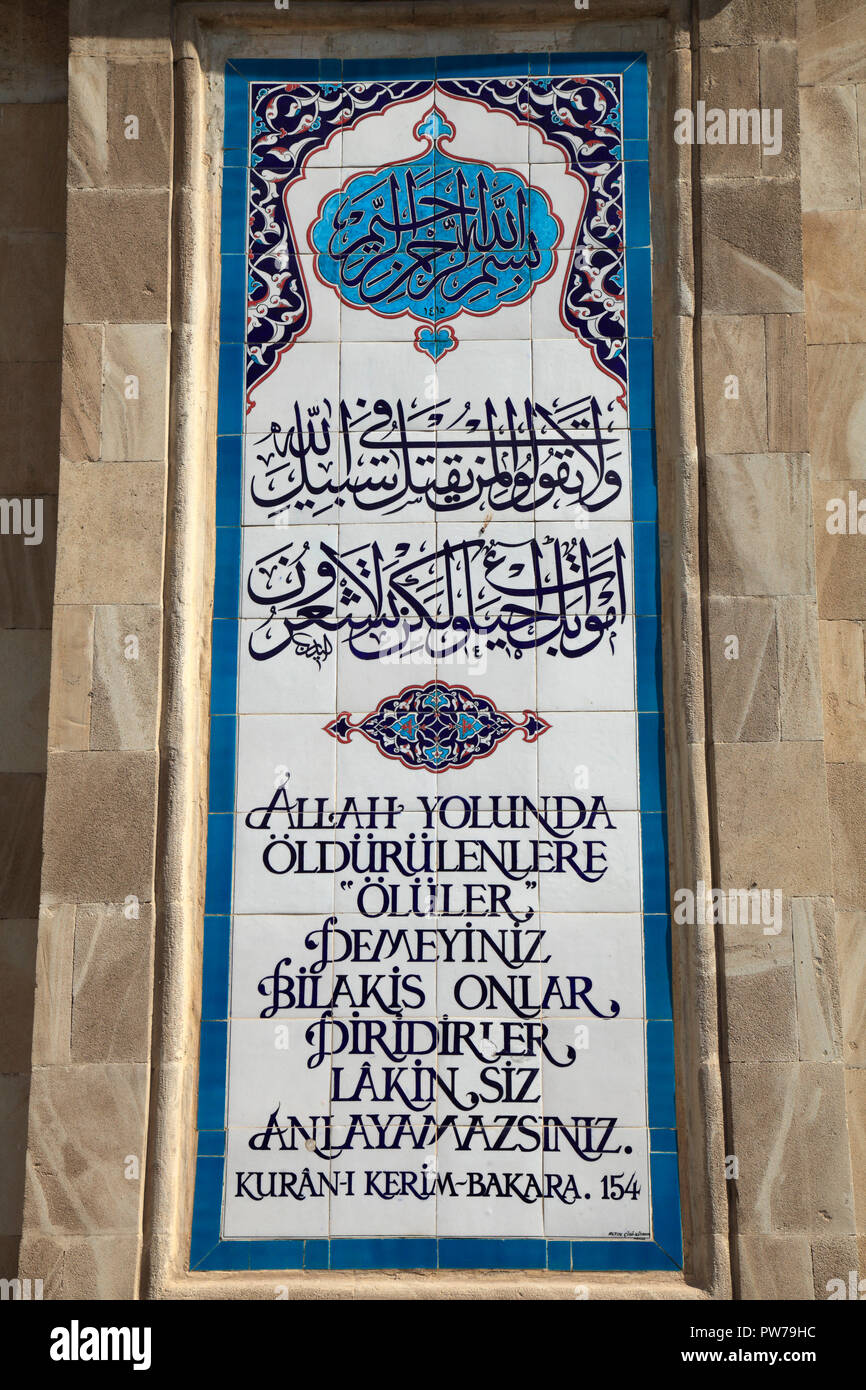 بسم الله الرحمن الرحيم
١٤١٥
ولا تقولوا لمن يقتل في سبيل الله
اموات بل احياء ولكن لا تشعرون
١٤١٥
ALLAH YOLUNDA
ÖLDÜRÜLENLERE
“ÖLÜLER”
DEMEYİNİZ
BİLAKİS ONLAR
DİRİDİRLER
LÂKİN SİZ
ANLAYAMAZSINIZ.
KURÂN-I KERİM-BAKARA. 154
alamy
Image ID: PW79HC
www.alamy.com